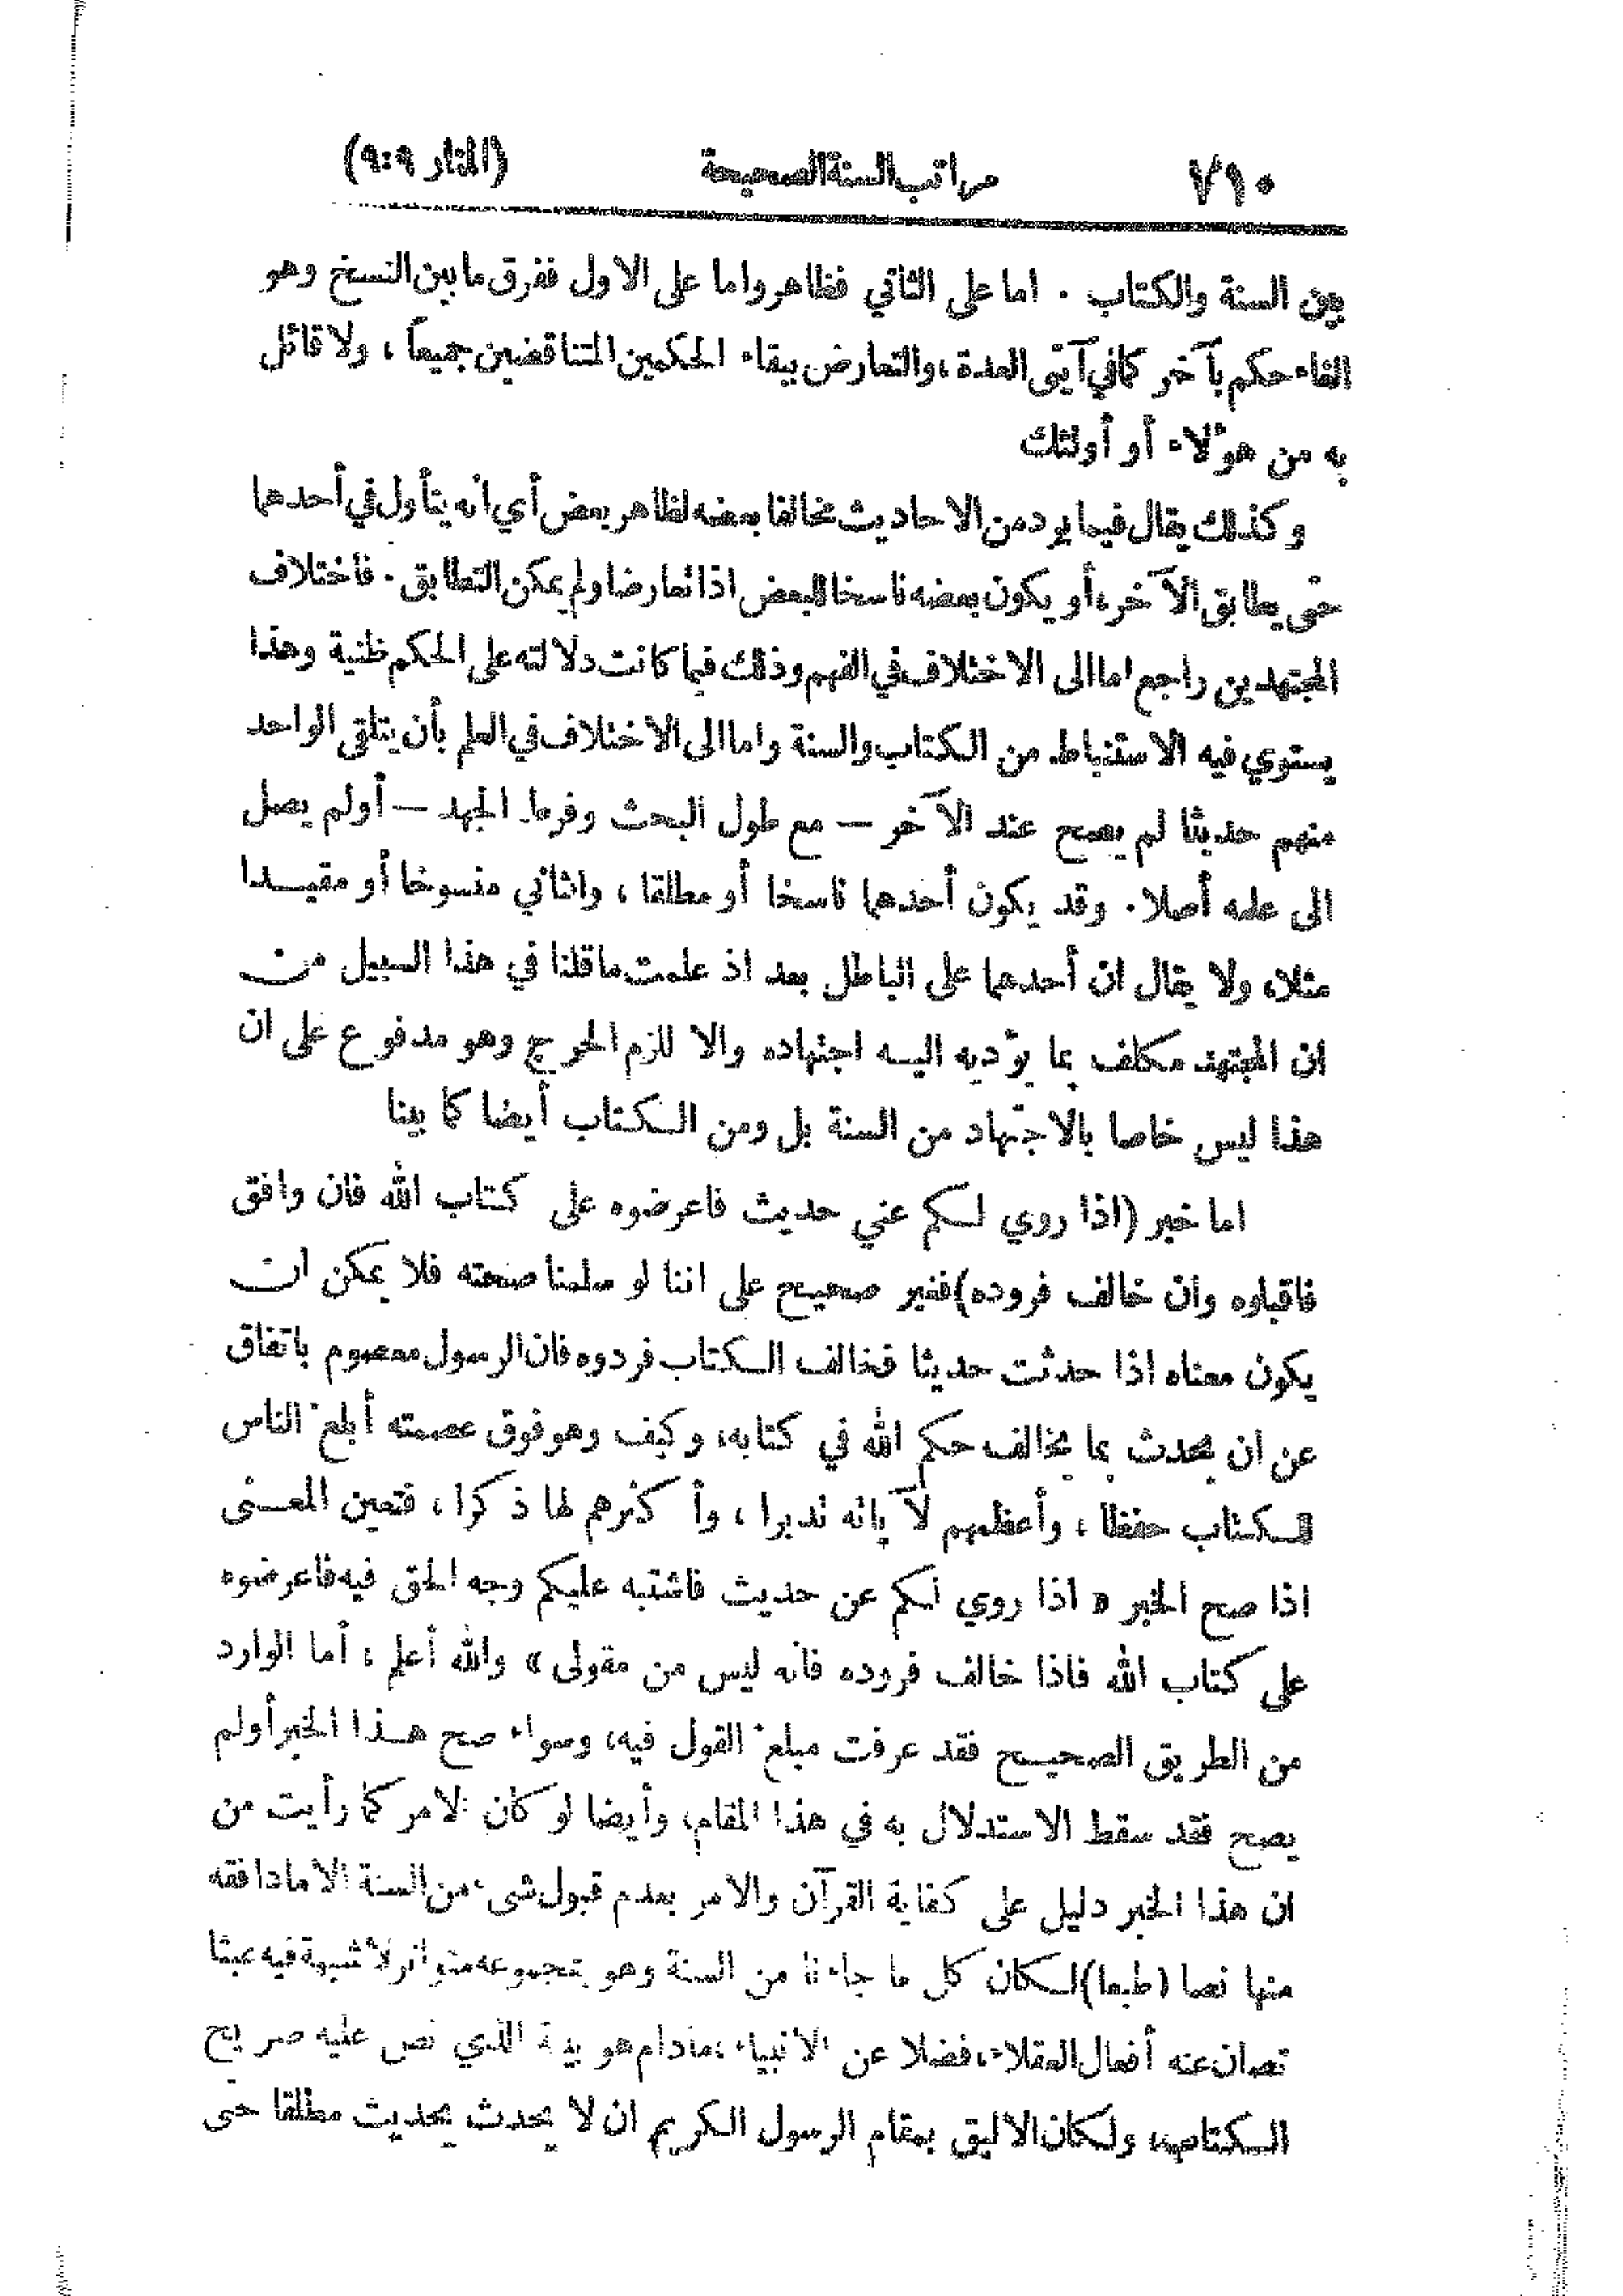 ٧١٠ مراتب السنة الصحيحة (المنار ٩:٩)
بين السنة والكتاب . اما على الثاني فظاهر واما على الاول ففرق ما بين النسخ وهو
الغاء حكم بآخر كما في آيتي العدة ، والتعارض ببقاء الحكمين المتناقضين جميعاً ، ولا قائل
به من هؤلاء أو أولئك
وكذلك يقال فيما يرد من الاحاديث مخالفا بعضه لظاهر بعض أي انه يتأول في أحدهما
حتى يطابق الآخر، أو يكون بعضه ناسخا للبعض اذا تعارضا ولم يمكن التطابق . فاختلاف
المجتهدين راجع اما الى الاختلاف في الفهم وذلك فيما كانت دلالته على الحكم ظنية وهذا
يستوي فيه الاستنباط من الكتاب والسنة واما الى الاختلاف في العلم بأن يتلقى الواحد
منهم حديثا لم يصح عند الآخر — مع طول البحث وفرط الجهد — أولم يصل
الى علمه أصلا . وقد يكون أحدهما ناسخا أو مطلقا ، والثاني منسوخا أو مقيدا
مثلا، ولا يقال ان أحدهما على الباطل بعد اذ علمت ما قلنا في هذا السبيل من
ان المجتهد مكلف بما يؤديه اليه اجتهاده والا للزم الحرج وهو مدفوع على ان
هذا ليس خاصا بالاجتهاد من السنة بل ومن الكتاب أيضا كما بينا
اما خبر (اذا روي لكم عني حديث فاعرضوه على كتاب الله فان وافق
فاقبلوه وان خالف فروده) فغير صحيح على اننا لو سلمنا صحته فلا يمكن ان
يكون معناه اذا حدثت حديثا فخالف الكتاب فردوه فان الرسول معصوم باتفاق
عن ان يحدث بما يخالف حكم الله في كتابه، وكيف وهو فوق عصمته أبلغ الناس
للكتاب حفظا ، وأعظمهم لآياته تدبرا ، وأكثرهم لها ذكرا ، فتعين المعنى
اذا صح الخبر « اذا روي لكم عن حديث فاشتبه عليكم وجه الحق فيه فاعرضوه
على كتاب الله فاذا خالف فروده فانه ليس من مقولى » والله أعلم ، أما الوارد
من الطريق الصحيح فقد عرفت مبلغ القول فيه، وسواء صح هذا الخبر أولم
يصح فقد سقط الاستدلال به في هذا المقام، وأيضا لو كان الامر كما رأيت من
ان هذا الخبر دليل على كفاية القرآن والامر بعدم قبول شيء من السنة الا ما وافقه
منها نصا (طبعا) لكان كل ما جاءنا من السنة وهو بمجموعه متواتر لا شبهة فيه عبثا
تصان عنه أفعال العقلاء، فضلا عن الانبياء، مادام هو الذي نص عليه صريح
الكتاب، ولكان الاليق بمقام الرسول الكريم ان لا يحدث بحديث مطلقا حتى